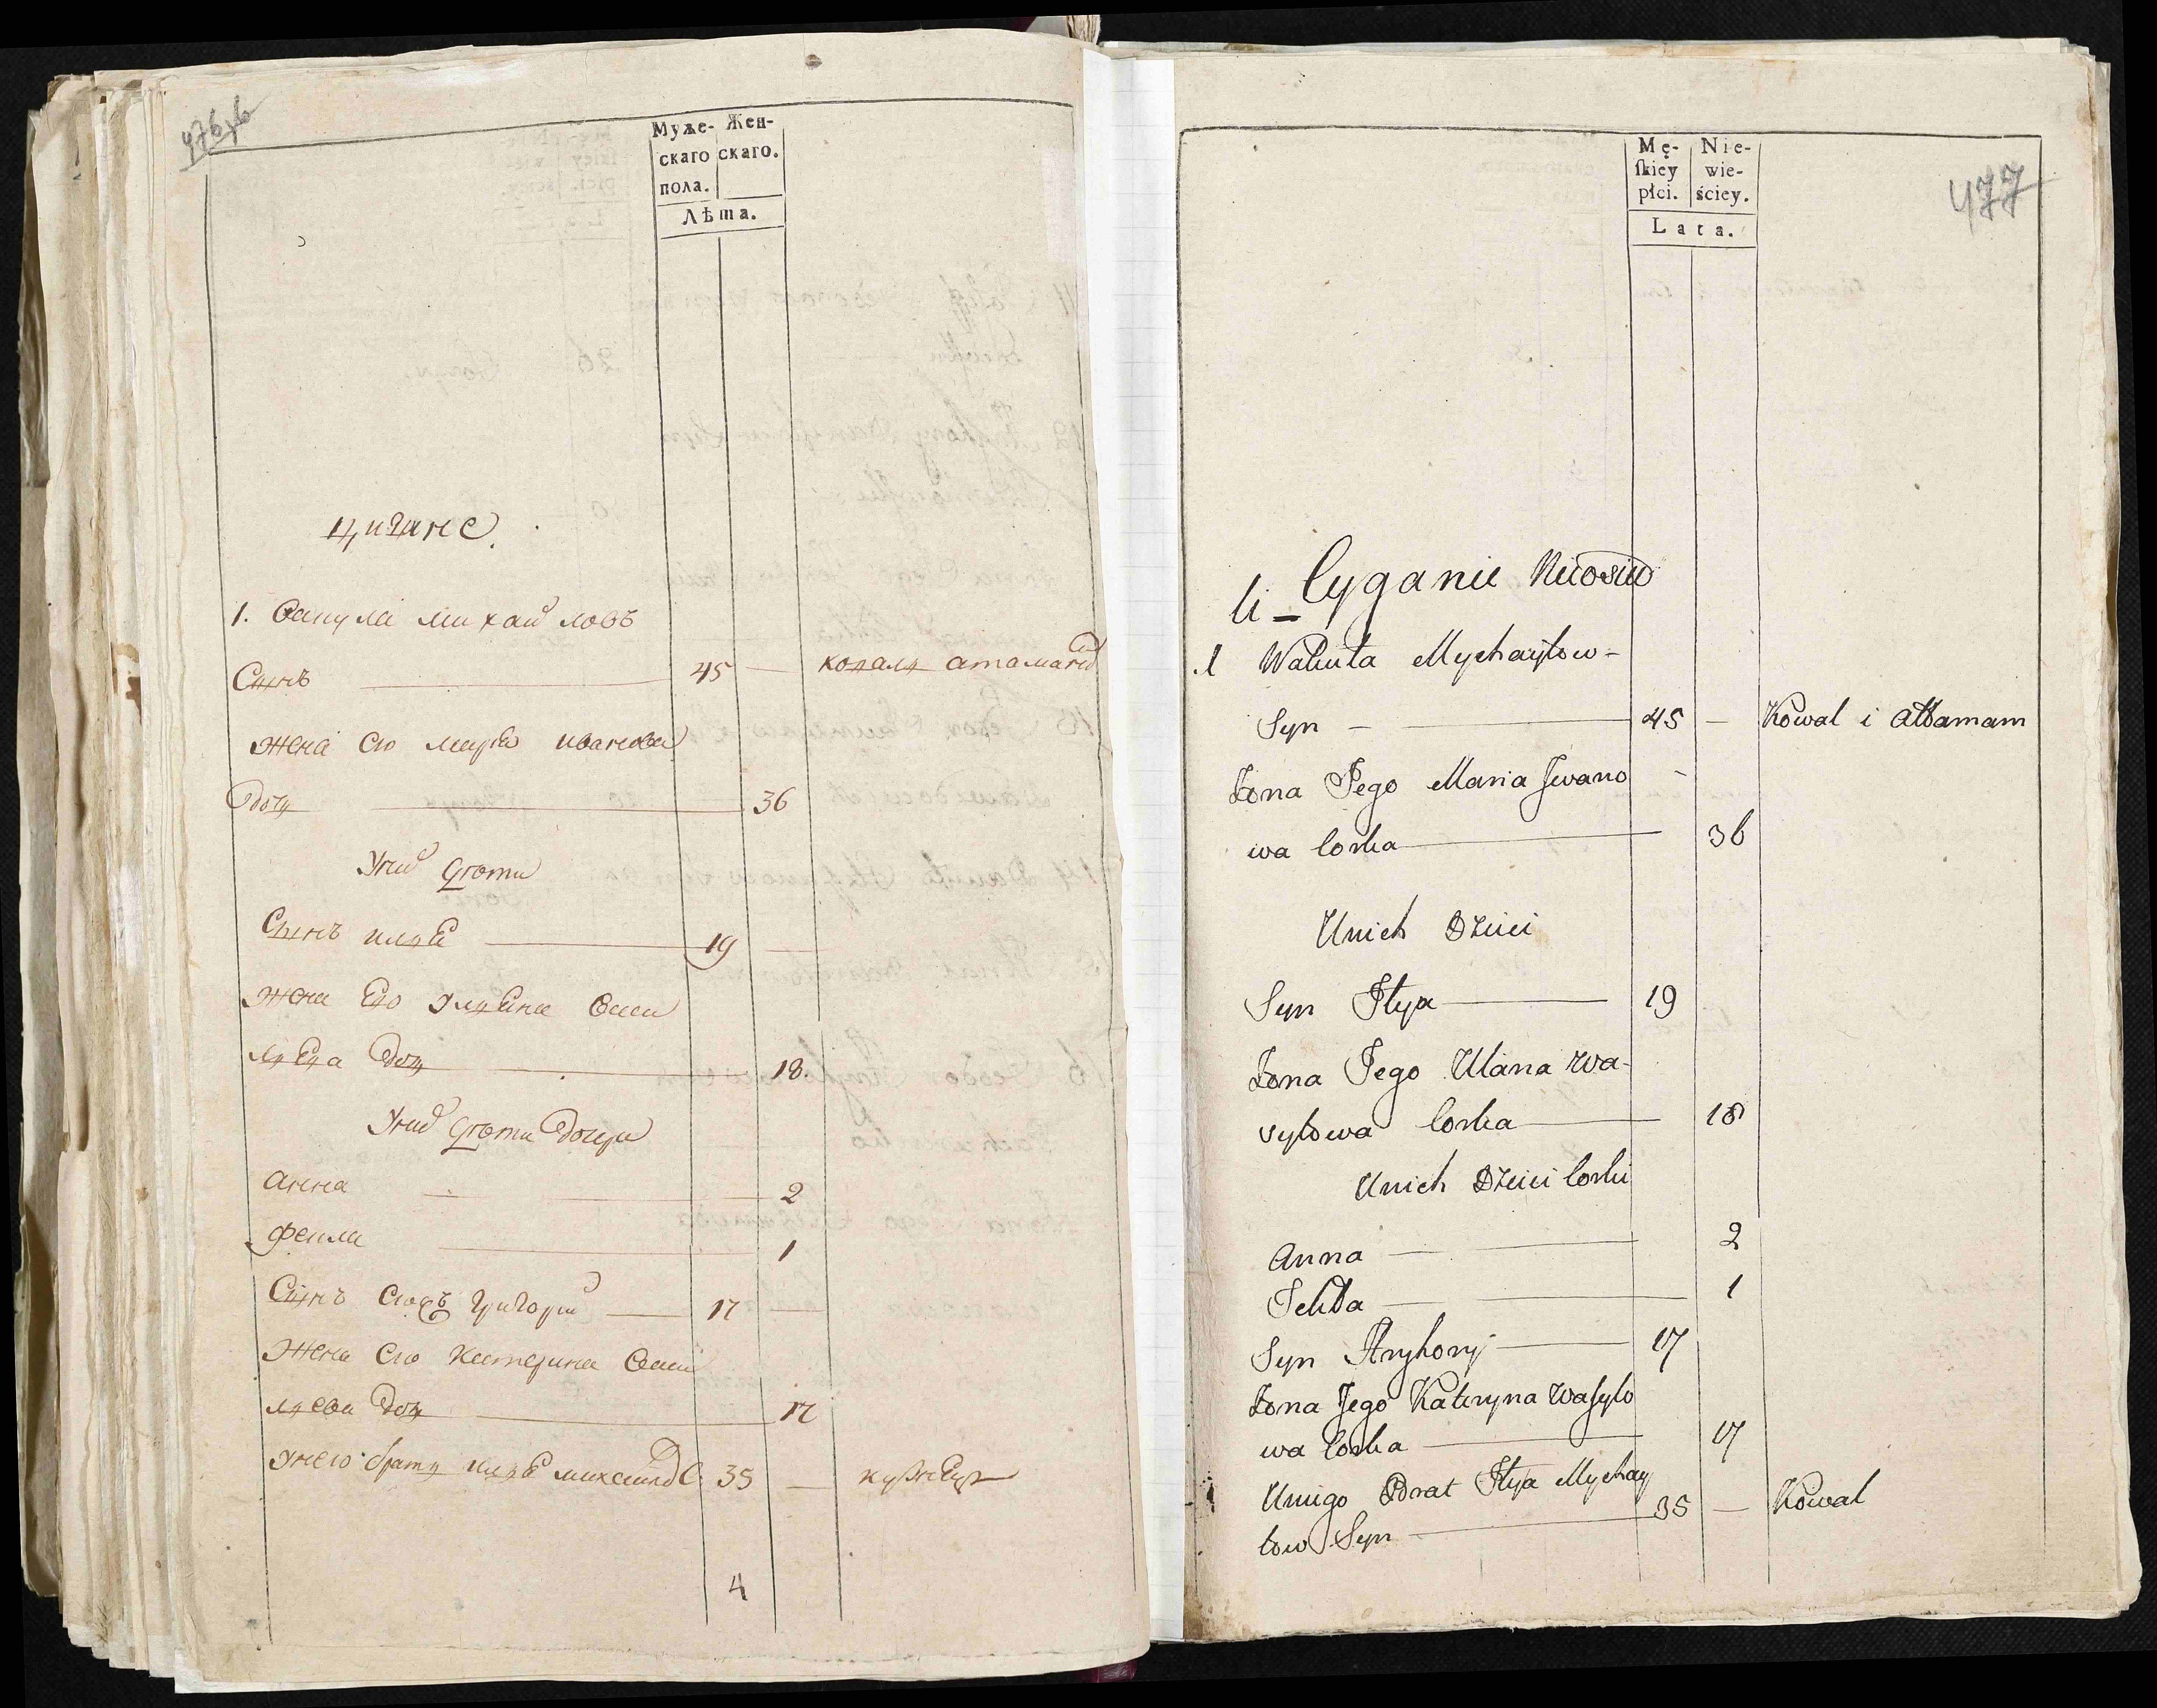 476
Муже-
скаго
пола.
Жен-
скаго.
Лѣта.
цигане.
1. Вакула михайловъ
Синъ 45 — коваль атаманъ
Жена его марья иванова
дочь 36
У них дѣти
Синъ илья 19 —
жена его ульяна васи
льева дочь 18.
У них дѣти дочери
анна 2
фекла 1
Синъ григорий 17 —
Жена его катерина васи
льева дочь 17
У него братъ илья 35 — кузнецъ
4
477
Mę-
skiey
płci.
Nie-
wie-
ściey.
Lata.
Cyganie
1 Wakuła Mychayłow-
Syn — 45 — Kowal i attamam
Żona Jego Maria Jwano -
wa Corka 36
Unich Dzieci
Syn Jlya 19
Żona Jego Ulana Wa-
syłowa Corka 18
Unich Dzieci Corki
Anna 2
Tekła 1
Syn Hryhory 17
Żona Jego Kateryna Wasyło
wa Corka 17
Uniego Brat Jlya Mychay
łow Syn 35 — Kowal